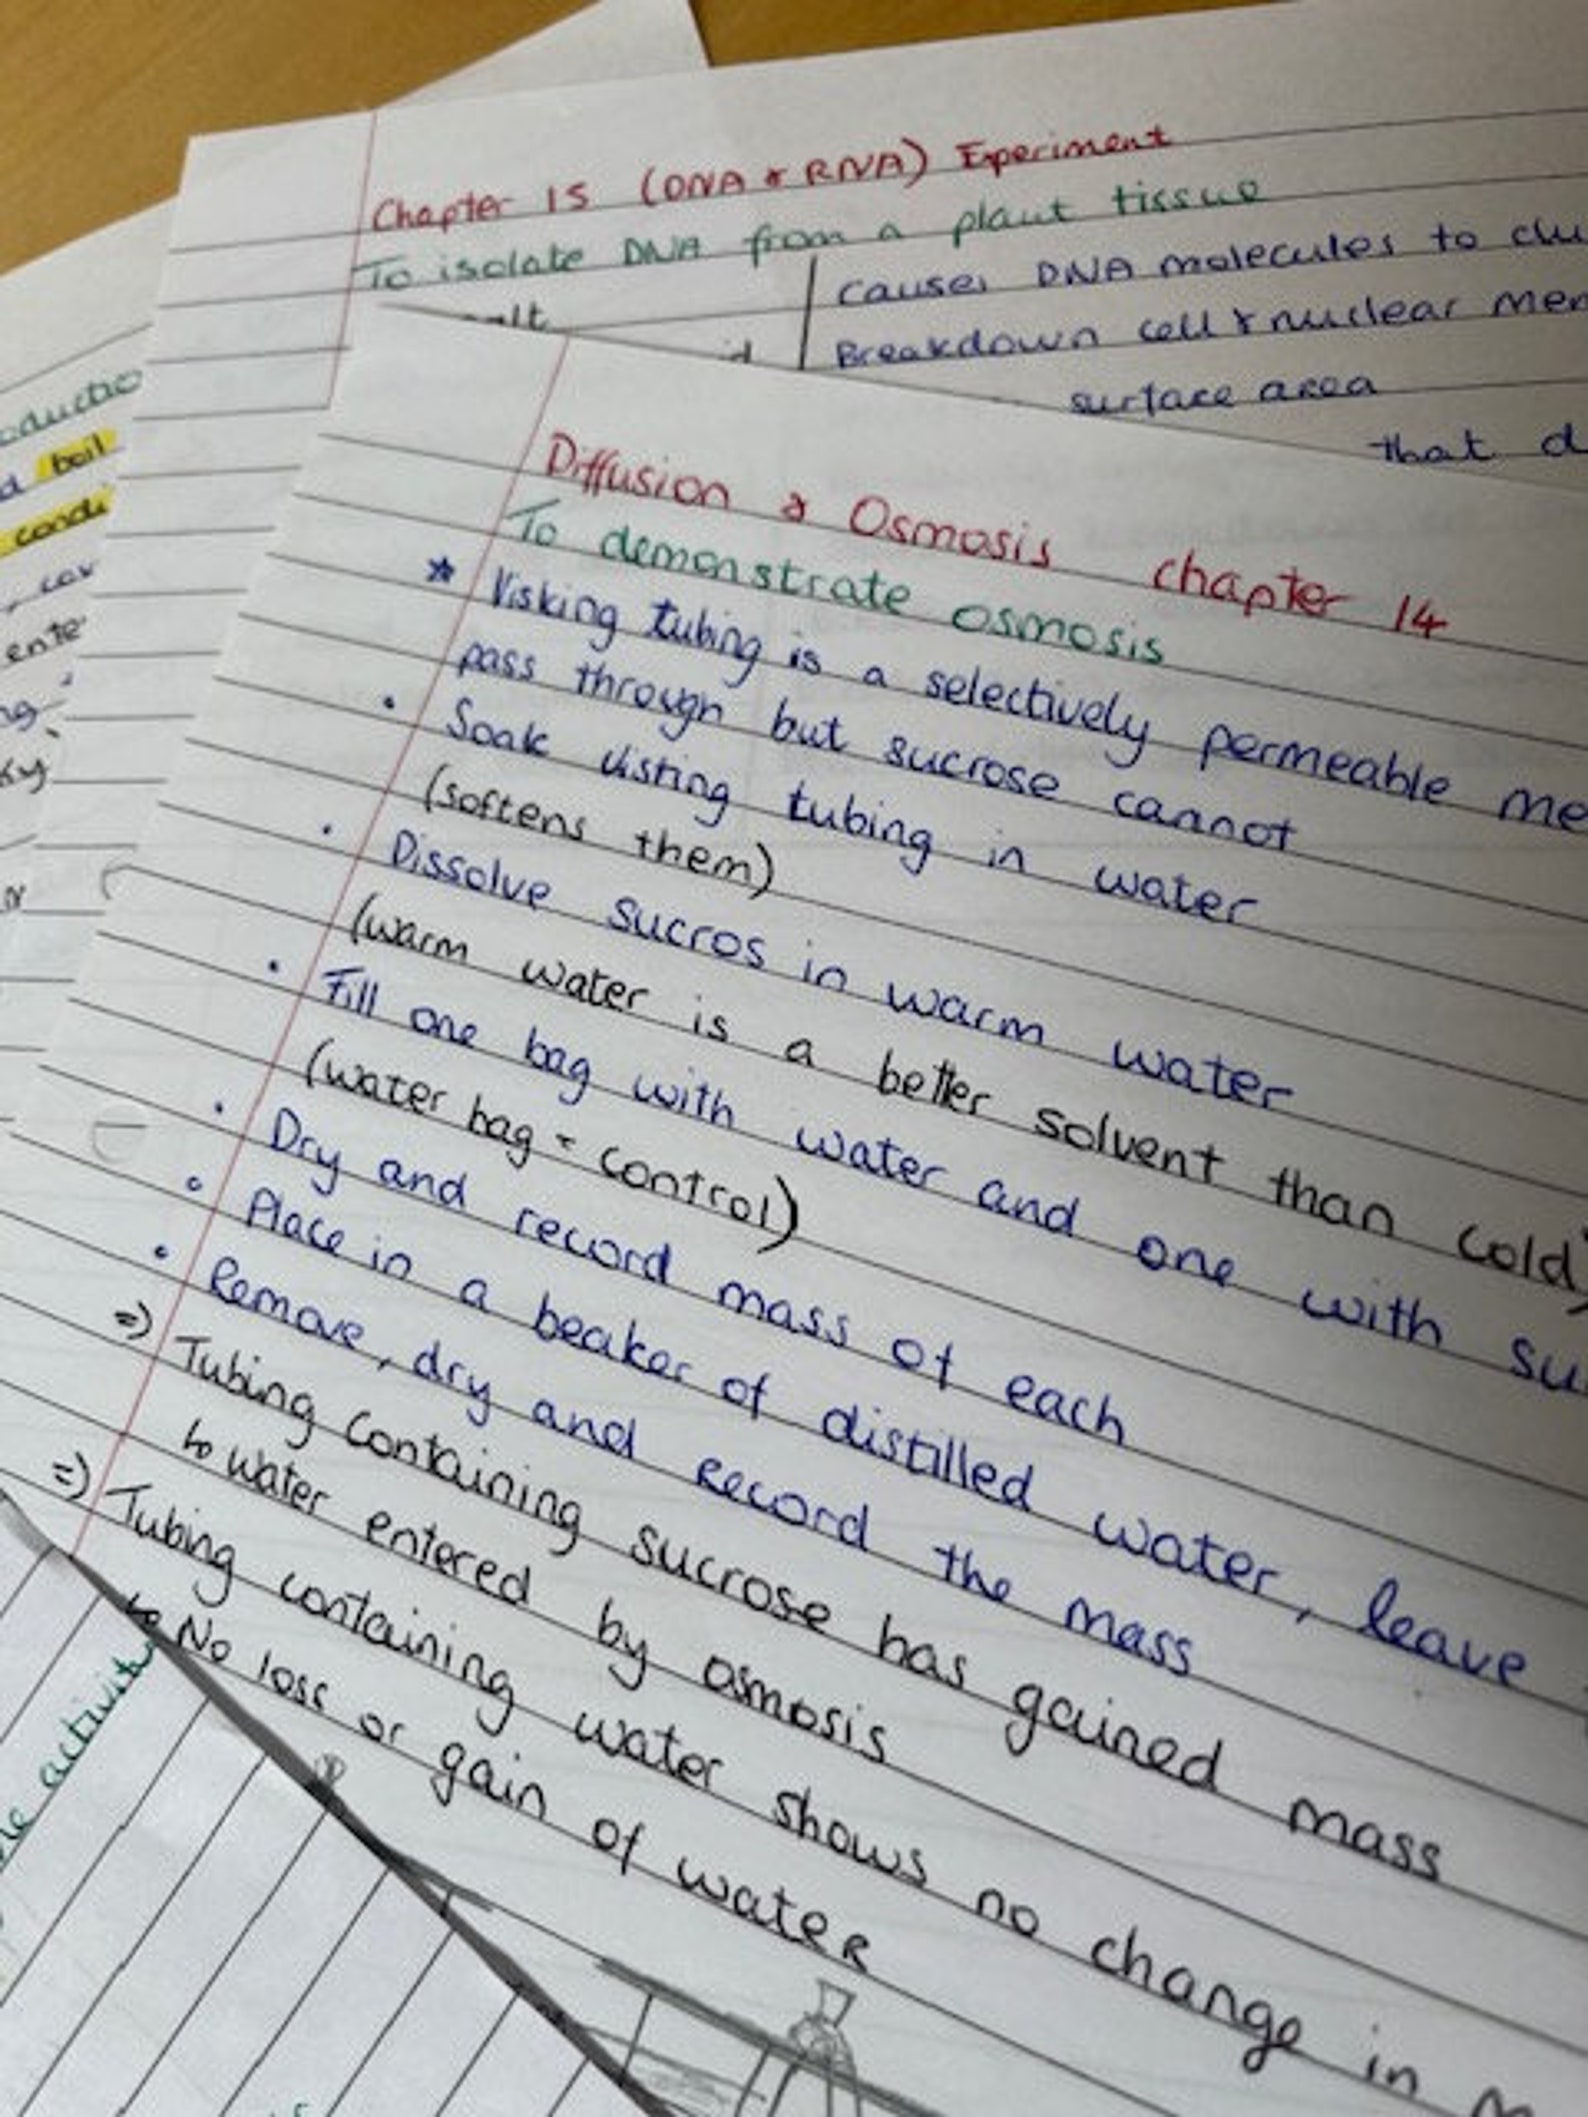 Chapter 15 (DNA & RNA) Experiment
To isolate DNA from a plant tissue
Causes DNA molecules to clu
Breakdown cell & nuclear mem
surface area
that d
Diffusion & Osmosis chapter 14
To demonstrate osmosis
* Visking tubing is a selectively permeable me
pass through but sucrose cannot
• Soak visting tubing in water
(softens them)
• Dissolve sucros in warm water
(warm water is a better solvent than cold)
• Fill one bag with water and one with su
(water bag = control)
• Dry and record mass of each
• Place in a beaker of distilled water, leave
• Remove, dry and record the mass
=> Tubing containing sucrose has gained mass
↳ water entered by osmosis
=> Tubing containing water shows no change in m
↳ No loss or gain of water
oductio
d boil
condi
, cov
ente
ng
ky)
or
activity